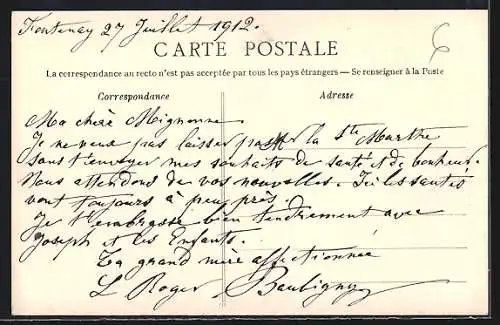 Fontenay 27 Juillet 1912.
CARTE POSTALE
La correspondance au recto n'est pas acceptée par tous les pays étrangers — Se renseigner à la Poste
Correspondance
Adresse
Ma chère Mignonne
Je ne veux pas laisser passer la Ste Marthe
sans t'envoyer mes souhaits de santé et de bonheur.
Nous attendons de vos nouvelles. Ici les santés
vont toujours à peu près.
Je t'embrasse bien tendrement avec
Joseph et les Enfants.
Ta grand mère affectionnée
L Roger Baubigny